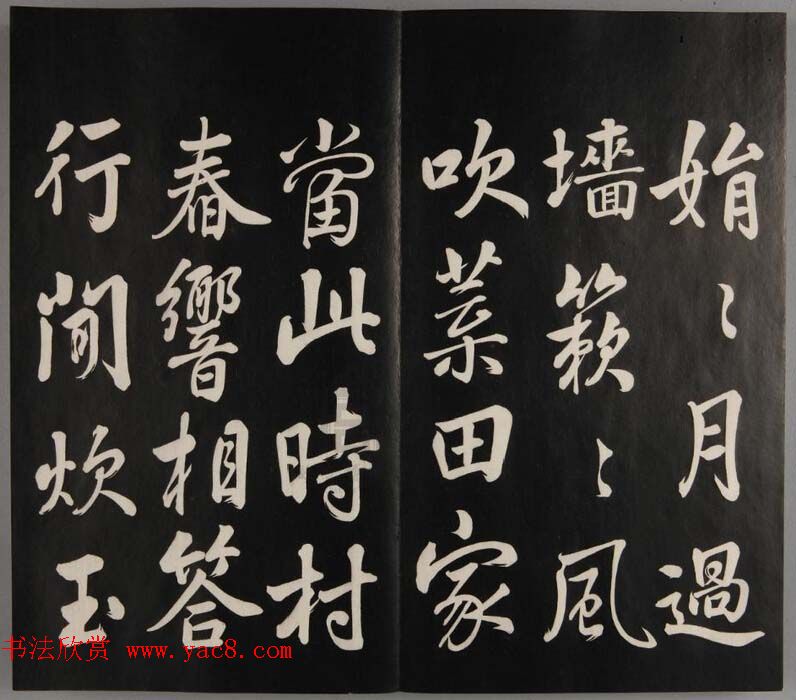 娟〻月過
墻簌〻風
吹葉田家
當此時村
舂響相答
行聞炊玉
书法欣赏 www.yac8.com